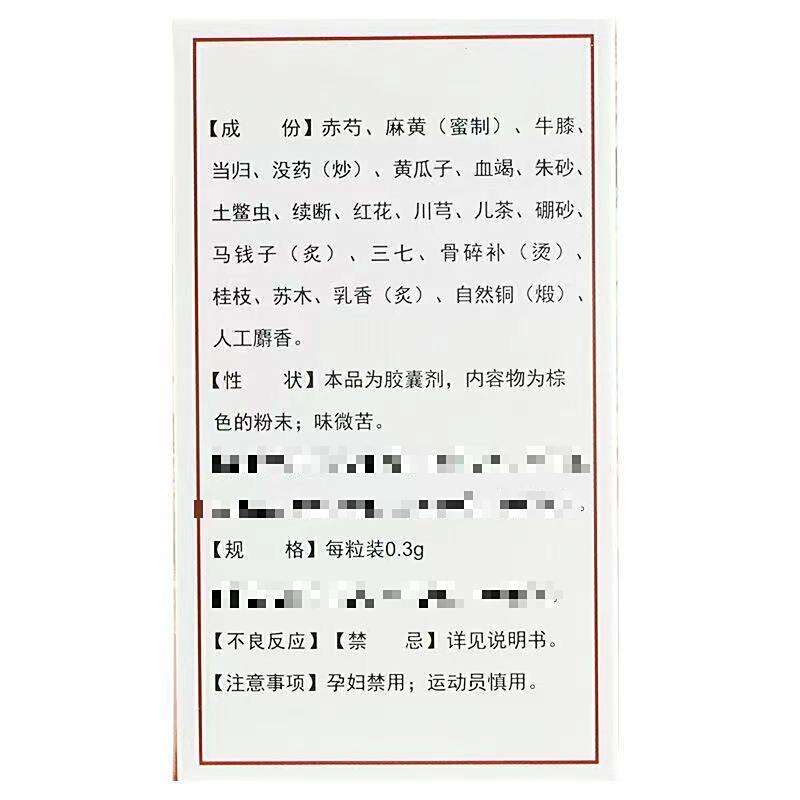 【成　　份】赤芍、麻黄（蜜制）、牛膝、
当归、没药（炒）、黄瓜子、血竭、朱砂、
土鳖虫、续断、红花、川芎、儿茶、硼砂、
马钱子（炙）、三七、骨碎补（烫）、
桂枝、苏木、乳香（炙）、自然铜（煅）、
人工麝香。
【性　　状】本品为胶囊剂，内容物为棕
色的粉末；味微苦。
【规　　格】每粒装0.3g
【不良反应】【禁　　忌】详见说明书。
【注意事项】孕妇禁用；运动员慎用。